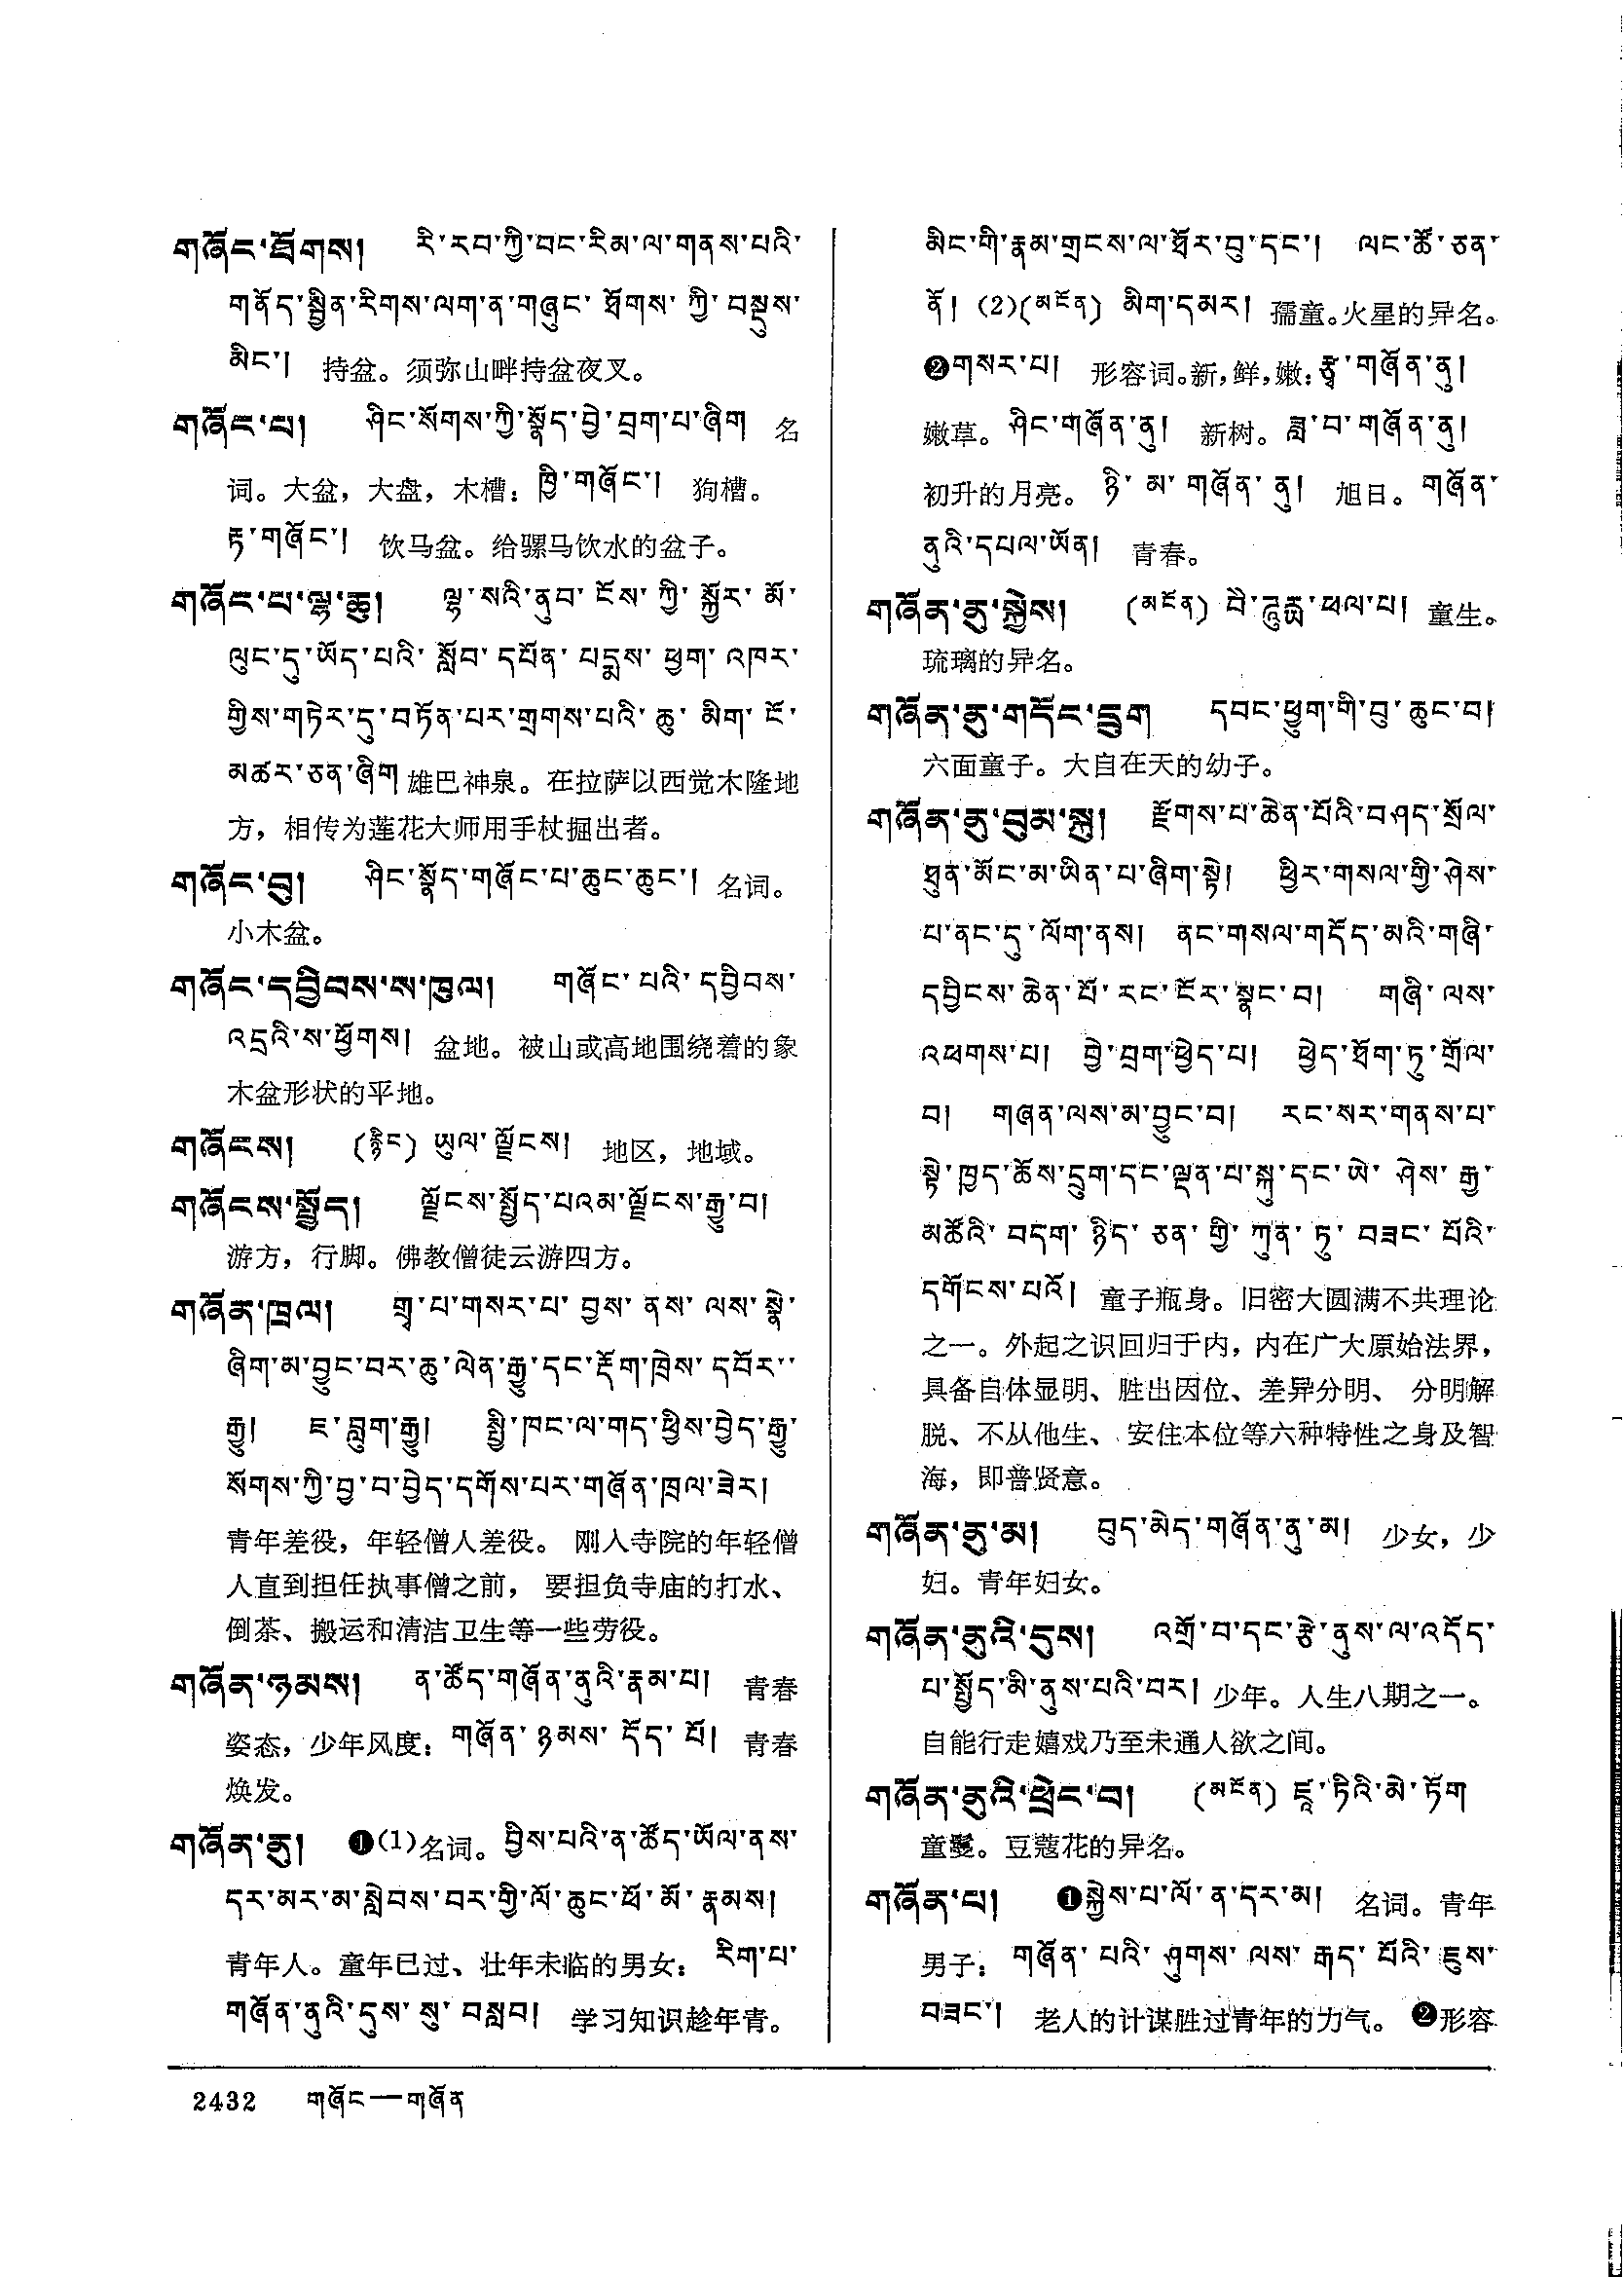 གཞོང་ཐོགས། རི་རབ་ཀྱི་བང་རིམ་ལ་གནས་པའི་
གནོད་སྦྱིན་རིགས་ལག་ན་གཞུང་ ཐོགས་ ཀྱི་ བསྡུས་
མིང་། 持盆。须弥山畔持盆夜叉。
གཞོང་པ། ཤིང་སོགས་ཀྱི་སྣོད་བྱེ་བྲག་པ་ཞིག 名
词。大盆，大盘，木槽：ཁྱི་གཞོང་། 狗槽。
རྟ་གཞོང་། 饮马盆。给骡马饮水的盆子。
གཞོང་པ་ལྷ་ཆུ། ལྷ་སའི་ནུབ་ ངོས་ ཀྱི་ སྐྱོར་ མོ་
ལུང་དུ་ཡོད་པའི་ སློབ་ དཔོན་ པདྨས་ ཕྱག་ འཁར་
གྱིས་གཏེར་དུ་བཏོན་པར་གྲགས་པའི་ ཆུ་ མིག་ ངོ་
མཚར་ཅན་ཞིག 雄巴神泉。在拉萨以西觉木隆地
方，相传为莲花大师用手杖掘出者。
གཞོང་བུ། ཤིང་སྣོད་གཞོང་པ་ཆུང་ཆུང་། 名词。
小木盆。
གཞོང་དབྱིབས་ས་ཁུལ། གཞོང་ པའི་ དབྱིབས་
འདྲའི་ས་ཕྱོགས། 盆地。被山或高地围绕着的象
木盆形状的平地。
གཞོངས། (རྙིང) ཡུལ་ལྗོངས། 地区，地域。
གཞོངས་སྤྱོད། ལྗོངས་སྤྱོད་པའམ་ལྗོངས་རྒྱུ་བ།
游方，行脚。佛教僧徒云游四方。
གཞོན་ཁྲལ། གྲྭ་པ་གསར་པ་ བྱས་ ནས་ ལས་སྣེ་
ཞིག་མ་བྱུང་བར་ཆུ་ལེན་རྒྱུ་དང་རྡོག་ཁྲེས་ དབོར་་
རྒྱུ། ཇ་བླུག་རྒྱུ། སྤྱི་ཁང་ལ་གད་ཕྱིས་བྱེད་རྒྱུ་
སོགས་ཀྱི་བྱ་བ་བྱེད་དགོས་པར་གཞོན་ཁྲལ་ཟེར།
青年差役，年轻僧人差役。 刚入寺院的年轻僧
人直到担任执事僧之前， 要担负寺庙的打水、
倒茶、搬运和清洁卫生等一些劳役。
གཞོན་ཉམས། ན་ཚོད་གཞོན་ནུའི་རྣམ་པ། 青春
姿态，少年风度：གཞོན་ ཉམས་ དོད་ པོ། 青春
焕发。
གཞོན་ནུ། ❶(1)名词。བྱིས་པའི་ན་ཚོད་ཡོལ་ནས་
དར་མར་མ་སླེབས་བར་གྱི་ལོ་ཆུང་ཕོ་མོ་རྣམས།
青年人。童年已过、壮年未临的男女：རིག་པ་
གཞོན་ནུའི་དུས་ སུ་ བསླབ། 学习知识趁年青。
མིང་གི་རྣམ་གྲངས་ལ་ཐོར་བུ་དང་། ལང་ཚོ་ཅན་
ནོ། (2)(མངོན) མིག་དམར། 孺童。火星的异名。
❷གསར་པ། 形容词。新，鲜，嫩：རྩྭ་གཞོན་ནུ།
嫩草。ཤིང་གཞོན་ནུ། 新树。ཟླ་བ་གཞོན་ནུ།
初升的月亮。 ཉི་ མ་ གཞོན་ ནུ། 旭日。གཞོན་
ནུའི་དཔལ་ཡོན། 青春。
གཞོན་ནུ་སྐྱེས། (མངོན) བཻ་ཌཱུརྱ་ཕལ་པ། 童生。
琉璃的异名。
གཞོན་ནུ་གདོང་དྲུག དབང་ཕྱུག་གི་བུ་ཆུང་བ།
六面童子。大自在天的幼子。
གཞོན་ནུ་བུམ་སྐུ། རྫོགས་པ་ཆེན་པོའི་བཤད་སྲོལ་
ཐུན་མོང་མ་ཡིན་པ་ཞིག་སྟེ། ཕྱིར་གསལ་གྱི་ཤེས་
པ་ནང་དུ་ལོག་ནས། ནང་གསལ་གདོད་མའི་གཞི་
དབྱིངས་ཆེན་པོ་རང་ངོར་སྣང་བ། གཞི་ལས་
འཕགས་པ། བྱེ་བྲག་ཕྱེད་པ། ཕྱེད་ཐོག་ཏུ་གྲོལ་
བ། གཞན་ལས་མ་བྱུང་བ། རང་སར་གནས་པ་
སྟེ་ཁྱད་ཆོས་དྲུག་དང་ལྡན་པ་སྐུ་དང་ཡེ་ ཤེས་ རྒྱ་
མཚོའི་ བདག་ ཉིད་ ཅན་ གྱི་ ཀུན་ ཏུ་ བཟང་ པོའི་
དགོངས་པའོ། 童子瓶身。旧密大圆满不共理论
之一。外起之识回归于内，内在广大原始法界，
具备自体显明、胜出因位、差异分明、 分明解
脱、不从他生、安住本位等六种特性之身及智
海，即普贤意。
གཞོན་ནུ་མ། བུད་མེད་གཞོན་ནུ་མ། 少女，少
妇。青年妇女。
གཞོན་ནུའི་དུས། འགྲོ་བ་དང་རྩེ་ནུས་ལ་འདོད་
པ་སྤྱོད་མི་ནུས་པའི་བར། 少年。人生八期之一。
自能行走嬉戏乃至未通人欲之间。
གཞོན་ནུའི་ཕྲེང་བ། (མངོན) ཛཱ་ཏིའི་མེ་ཏོག
童鬘。豆蔻花的异名。
གཞོན་པ། ❶སྐྱེས་པ་ལོ་ན་དར་མ། 名词。青年
男子：གཞོན་ པའི་ ཤུགས་ ལས་ རྒད་ པོའི་ ཇུས་
བཟང་། 老人的计谋胜过青年的力气。❷形容
2432 གཞོང—གཞོན